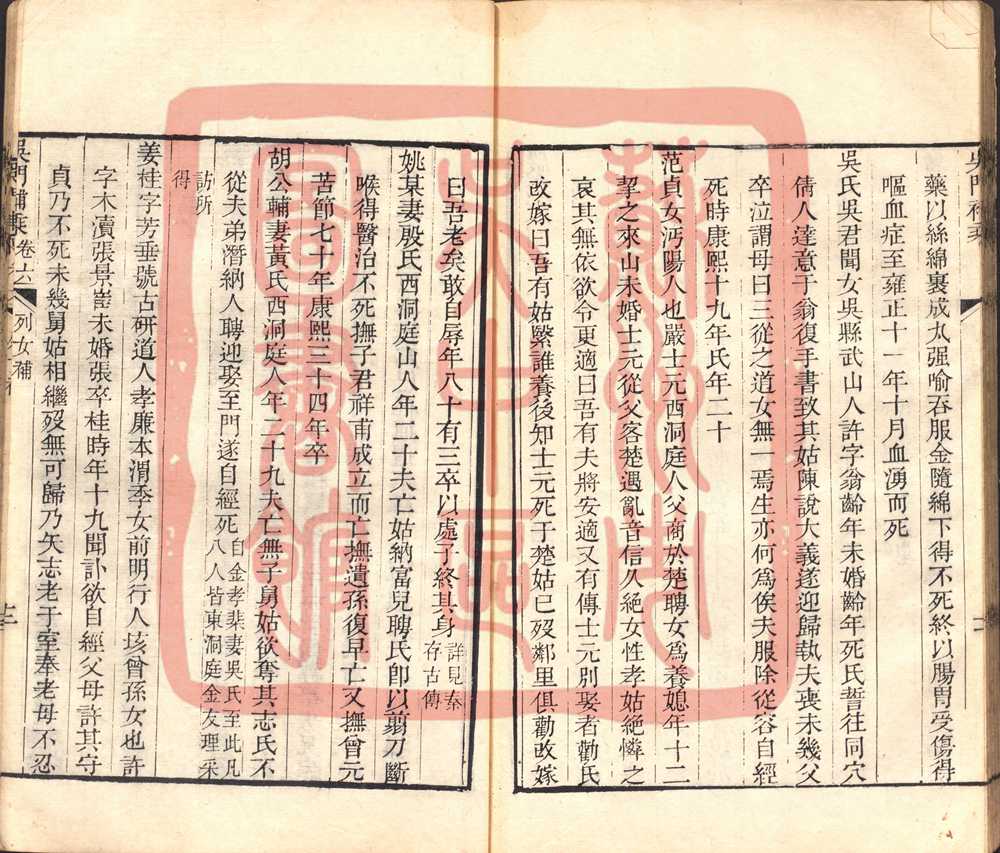 藥以絲綿裹成丸强喻吞服金隨綿下得不死終以腸胃受傷得
嘔血症至雍正十一年十月血湧而死
吳氏吳君聞女吳縣武山人許字翁齡年未婚齡年死氏誓往同穴
倩人達意于翁復手書致其姑陳說大義遂迎歸執夫喪未幾父
卒泣謂母曰三從之道女無一焉生亦何為俟夫服除從容自經
死時康熙十九年氏年二十
范貞女沔陽人也嚴士元西洞庭人父商於楚聘女為養媳年十二
挈之來山未婚士元從父客楚遇亂音信久絕女性孝姑絕憐之
哀其無依欲令更適曰吾有夫將安適又有傳士元別娶者勸氏
改嫁曰吾有姑縈誰養後知士元死于楚姑已歿鄰里俱勸改嫁
曰吾老矣敢自辱年八十有三卒以處子終其身詳見秦存古傳
姚某妻殷氏西洞庭山人年二十夫亡姑納富兒聘氏卽以翦刀斷
喉得醫治不死撫子君祥甫成立而亡撫遺孫復早亡又撫曾元
苦節七十年康熙三十四年卒
胡公輔妻黃氏西洞庭人年二十九夫亡無子舅姑欲奪其志氏不
從夫弟潛納人聘迎娶至門遂自經死自金孝棐妻吳氏至此凡八人皆東洞庭金友理采
訪所得
姜桂字芳垂號古研道人孝廉本渭季女前明行人垓曾孫女也許
字木瀆張景崶未婚張卒桂時年十九聞訃欲自經父母許其守
貞乃不死未幾舅姑相繼歿無可歸乃矢志老于室奉老母不忍
吳門補乘 卷六 列女補
蘇州市吳中區圖書館